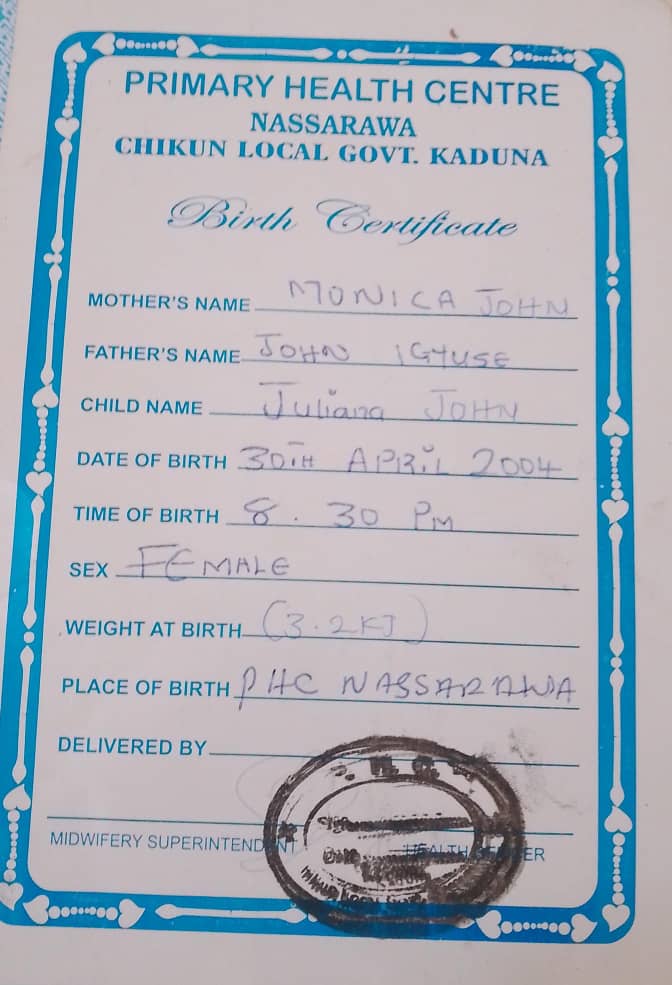 PRIMARY HEALTH CENTRE
NASSARAWA
CHIKUN LOCAL GOVT. KADUNA
Birth Certificate
MOTHER'S NAME MONICA JOHN
FATHER'S NAME JOHN IGYUSE
CHILD NAME Juliana JOHN
DATE OF BIRTH 30TH APRIL 2004
TIME OF BIRTH 8.30 PM
SEX FEMALE
WEIGHT AT BIRTH (3.2KJ)
PLACE OF BIRTH PHC NASSARAWA
DELIVERED BY
MIDWIFERY SUPERINTENDENT HEALTH